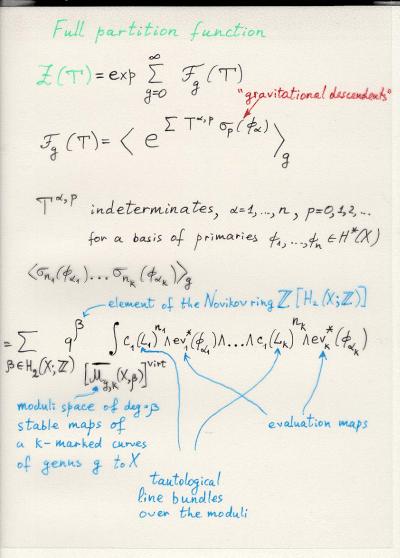 Full partition function
Z(T) = exp ∞ Σ g=0 F_g(T)
"gravitational descendents"
F_g(T) = ⟨ e^{Σ T^{α,p} σ_p(ϕ_α)} ⟩_g
T^{α,p} indeterminates, α=1,...,n, p=0,1,2,...
for a basis of primaries ϕ_1,...,ϕ_n ∈ H*(X)
⟨σ_{n_1}(ϕ_{α_1})...σ_{n_k}(ϕ_{α_k})⟩_g
element of the Novikov ring Z[H_2(X;Z)]
= Σ_{β∈H_2(X;Z)} q^β ∫_{[M̄_{g,k}(X,β)]^{virt}} c_1(L_1)^{n_1} ∧ ev_1^*(ϕ_{α_1}) ∧...∧ c_1(L_k)^{n_k} ∧ ev_k^*(ϕ_{α_k})
moduli space of deg=β
stable maps of
a k-marked curves
of genus g to X
evaluation maps
tautological
line bundles
over the moduli